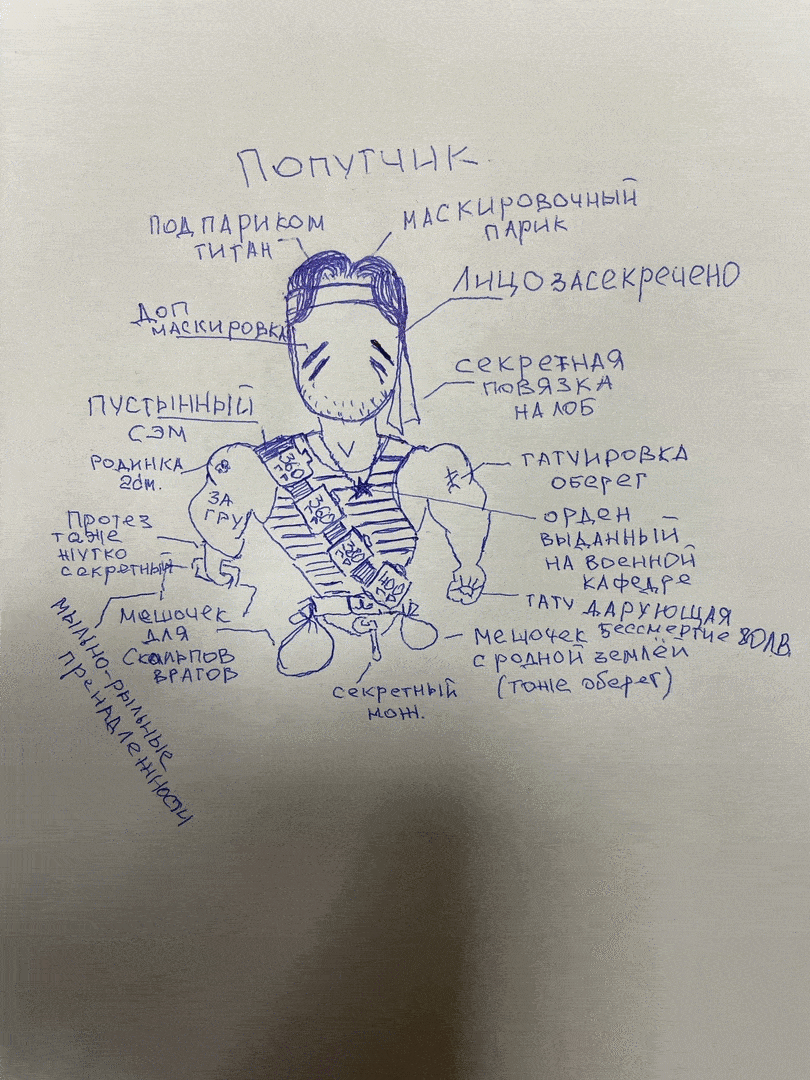 Попутчик
ПОД ПАРИКОМ
ТИТАН
МАСКИРОВОЧНЫЙ
ПАРИК
ЛИЦО ЗАСЕКРЕЧЕНО
ДОП
МАСКИРОВКА
СЕКРЕТНАЯ
ПОВЯЗКА
НА ЛОБ
ПУСТЫННЫЙ
СЭМ
РОДИНКА
2см.
ТАТУИРОВКА
ОБЕРЕГ
ЗА
ГРУ
360
360
380
400
Протез
тоже
жутко
секретный
ОРДЕН
ВЫДАННЫЙ
НА ВОЕННОЙ
КАФЕДРЕ
ТАТУ ДАРУЮЩАЯ
Бессмертие 80 LВ
мешочек
для
Скальпов
врагов
мешочек
с родной землёй
(тоже оберег)
секретный
нож.
мыльно-рыльные
пренадлежности